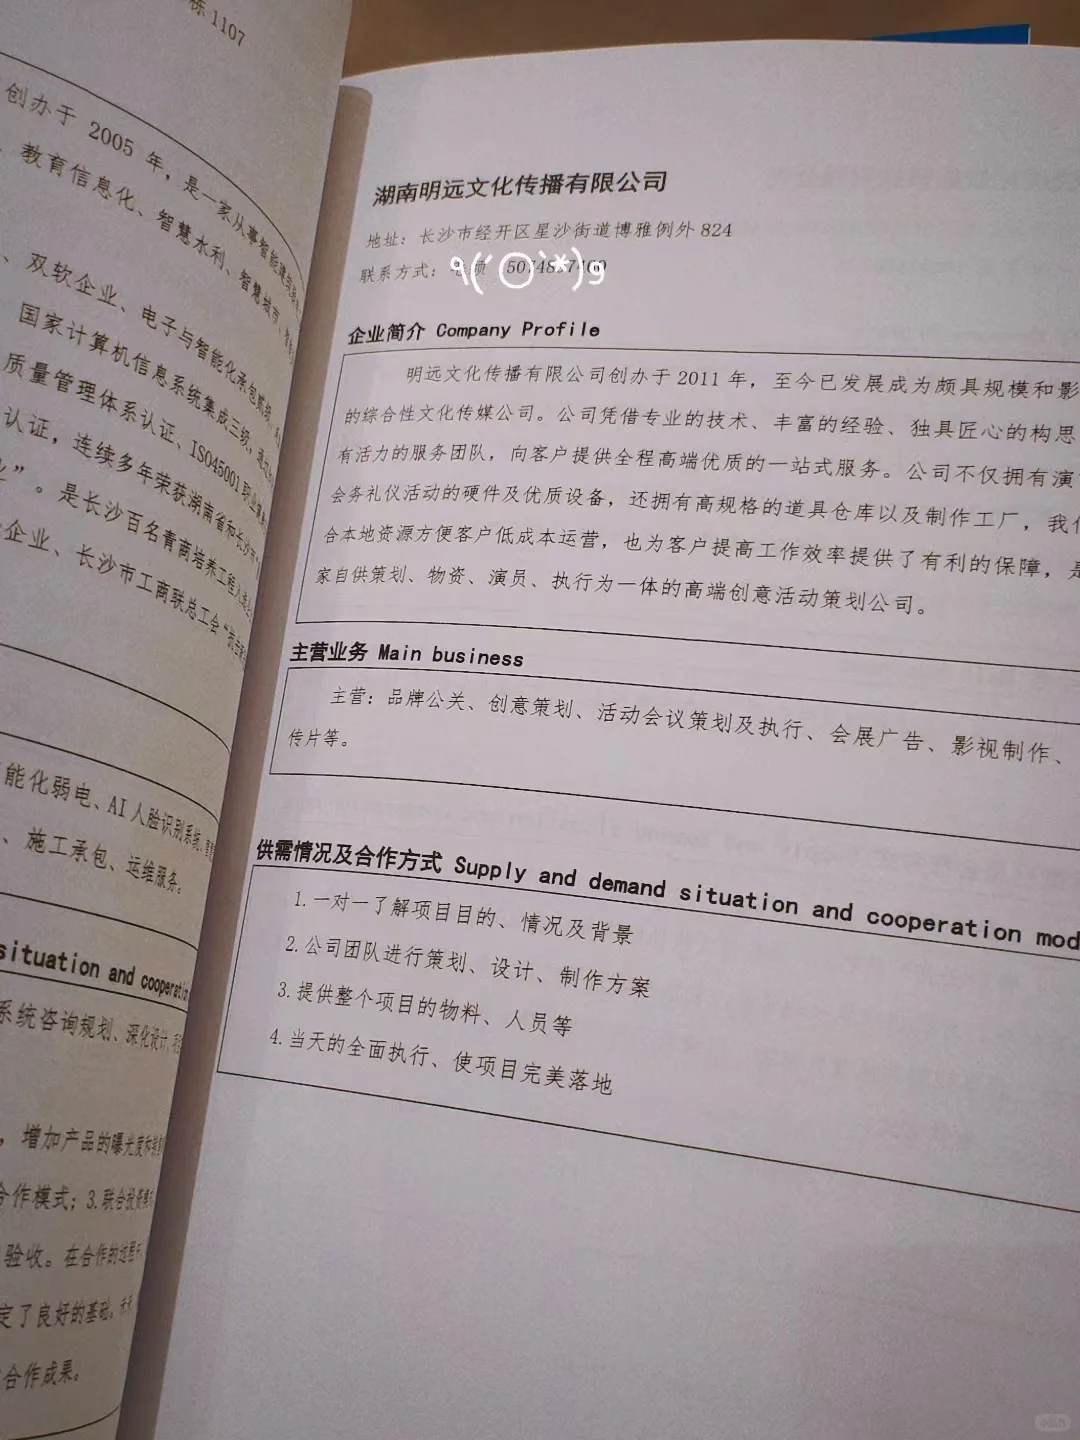 栋 1107
创办于 2005 年，是一家从事智能建筑
教育信息化、智慧水利、智慧城市
、双软企业、电子与智能化承包贰级
国家计算机信息系统集成三级
质量管理体系认证、ISO45001 职业
认证，连续多年荣获湖南省和长沙市
”。是长沙百名青商培养工程
企业、长沙市工商联总工会“
能化弱电、AI 人脸识别系统
、施工承包、运维服务。
situation and cooperation
系统咨询规划、深化设计、
，增加产品的曝光度和
合作模式；3.联合投资
验收。在合作的过程
定了良好的基础。
合作成果。
湖南明远文化传播有限公司
地址：长沙市经开区星沙街道博雅例外 824
联系方式：
企业简介 Company Profile
明远文化传播有限公司创办于 2011 年，至今已发展成为颇具规模和影
的综合性文化传媒公司。公司凭借专业的技术、丰富的经验、独具匠心的构思
有活力的服务团队，向客户提供全程高端优质的一站式服务。公司不仅拥有演
会务礼仪活动的硬件及优质设备，还拥有高规格的道具仓库以及制作工厂，我们
合本地资源方便客户低成本运营，也为客户提高工作效率提供了有利的保障，是
家自供策划、物资、演员、执行为一体的高端创意活动策划公司。
主营业务 Main business
主营：品牌公关、创意策划、活动会议策划及执行、会展广告、影视制作、
传片等。
供需情况及合作方式 Supply and demand situation and cooperation mod
1.一对一了解项目目的、情况及背景
2.公司团队进行策划、设计、制作方案
3.提供整个项目的物料、人员等
4.当天的全面执行、使项目完美落地